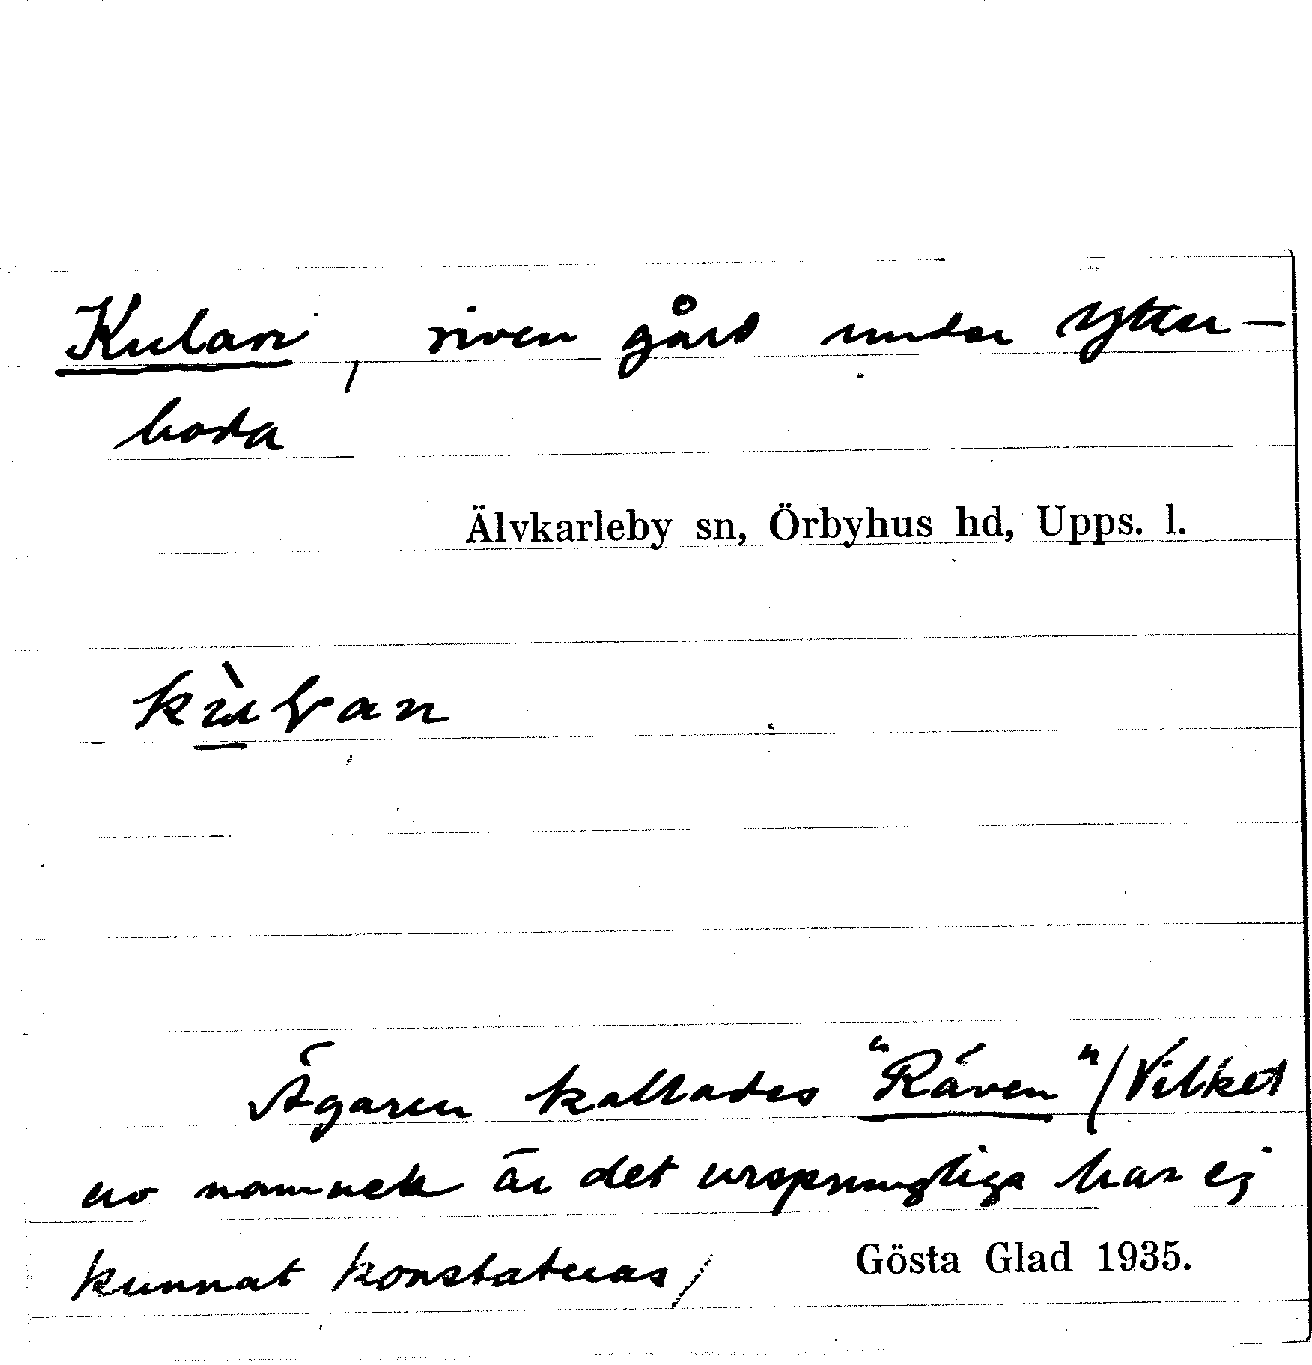 Kulan, riven gård under Ytter-
boda
Älvkarleby sn, Örbyhus hd, Upps. l.
Ägaren kallades "Räven" /Vilket
av namnen är det ursprungliga har ej
kunnat konstateras/
Gösta Glad 1935.